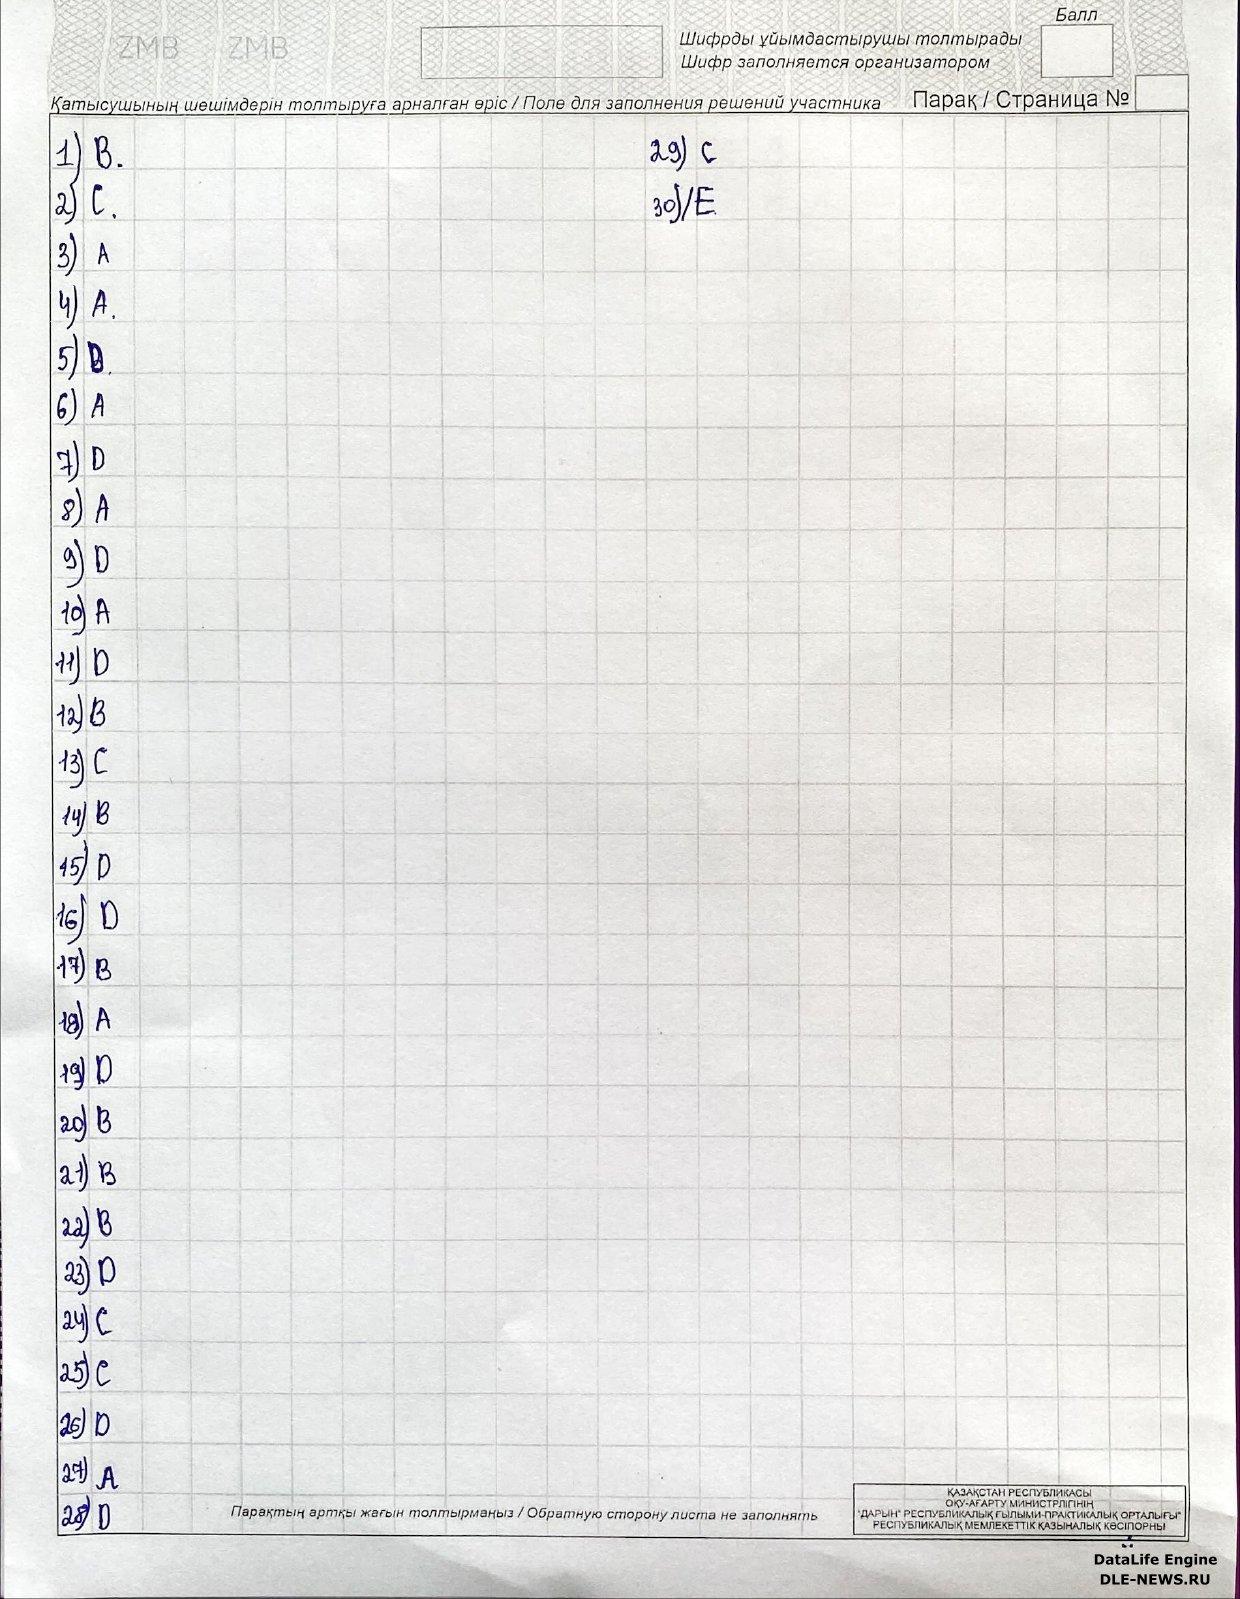 ZMB ZMB
Балл
Шифрды ұйымдастырушы толтырады
Шифр заполняется организатором
Қатысушының шешімдерін толтыруға арналған өріс / Поле для заполнения решений участника
Парақ / Страница №
1) B.
2) C.
3) A
4) A.
5) B.
6) A
7) D
8) A
9) D
10) A
11) D
12) B
13) C
14) B
15) D
16) D
17) B
18) A
19) D
20) B
21) B
22) B
23) D
24) C
25) C
26) D
27) A
28) D
29) C
30) E
Парақтың артқы жағын толтырмаңыз / Обратную сторону листа не заполнять
ҚАЗАҚСТАН РЕСПУБЛИКАСЫ
ОҚУ-АҒАРТУ МИНИСТРЛІГІНІҢ
"ДАРЫН" РЕСПУБЛИКАЛЫҚ ҒЫЛЫМИ-ПРАКТИКАЛЫҚ ОРТАЛЫҒЫ"
РЕСПУБЛИКАЛЫҚ МЕМЛЕКЕТТІК ҚАЗЫНАЛЫҚ КӘСІПОРНЫ
DataLife Engine
DLE-NEWS.RU